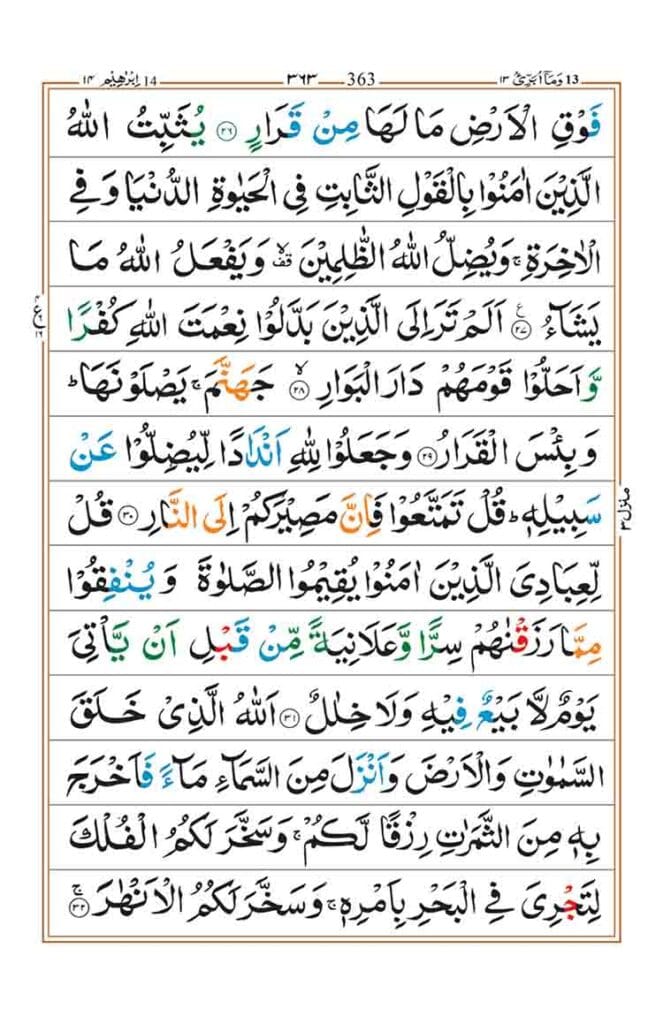 وَمَاۤ اُبَرِّئُ ١٣ 13 ٣٦٣ 363 اِبْرٰهِيْم ١٤ 14
فَوْقِ الْاَرْضِ مَا لَهَا مِنْ قَرَارٍ ۝٢٦ يُثَبِّتُ اللّٰهُ
الَّذِيْنَ اٰمَنُوْا بِالْقَوْلِ الثَّابِتِ فِى الْحَيٰوةِ الدُّنْيَا وَ فِى
الْاٰخِرَةِ ۚ وَيُضِلُّ اللّٰهُ الظّٰلِمِيْنَ ۙ قف وَ يَفْعَلُ اللّٰهُ مَا
يَشَآءُ ۝٢٧ ع اَلَمْ تَرَ اِلَى الَّذِيْنَ بَدَّلُوْا نِعْمَتَ اللّٰهِ كُفْرًا
وَّ اَحَلُّوْا قَوْمَهُمْ دَارَ الْبَوَارِ ۙ ۝٢٨ جَهَنَّمَ ۚ يَصْلَوْنَهَا ؕ
وَ بِئْسَ الْقَرَارُ ۝٢٩ وَ جَعَلُوْا لِلّٰهِ اَنْدَادًا لِّيُضِلُّوْا عَنْ
سَبِيْلِهٖ ؕ قُلْ تَمَتَّعُوْا فَاِنَّ مَصِيْرَكُمْ اِلَى النَّارِ ۝٣٠ قُلْ
منزل ٣
لِّعِبَادِىَ الَّذِيْنَ اٰمَنُوْا يُقِيْمُوا الصَّلٰوةَ وَ يُنْفِقُوْا
مِمَّا رَزَقْنٰهُمْ سِرًّا وَّ عَلَانِيَةً مِّنْ قَبْلِ اَنْ يَّاْتِىَ
يَوْمٌ لَّا بَيْعٌ فِيْهِ وَ لَا خِلٰلٌ ۝٣١ اَللّٰهُ الَّذِىْ خَلَقَ
السَّمٰوٰتِ وَالْاَرْضَ وَ اَنْزَلَ مِنَ السَّمَآءِ مَآءً فَاَخْرَجَ
بِهٖ مِنَ الثَّمَرٰتِ رِزْقًا لَّكُمْ ۚ وَ سَخَّرَ لَكُمُ الْفُلْكَ
لِتَجْرِىَ فِى الْبَحْرِ بِاَمْرِهٖ ۚ وَ سَخَّرَ لَكُمُ الْاَنْهٰرَ ۚ ۝٣٢